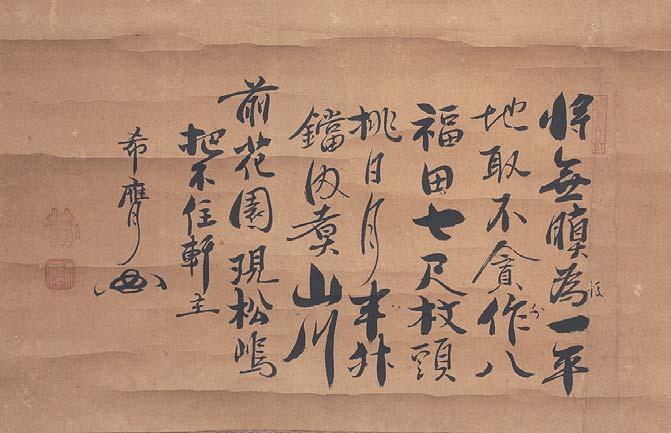 將無瞋為一平
地取不貪作八
福田七尺杖頭
挑日月半升
鐺内煮山川
前花園現松嶋
把不住軒主
希膺